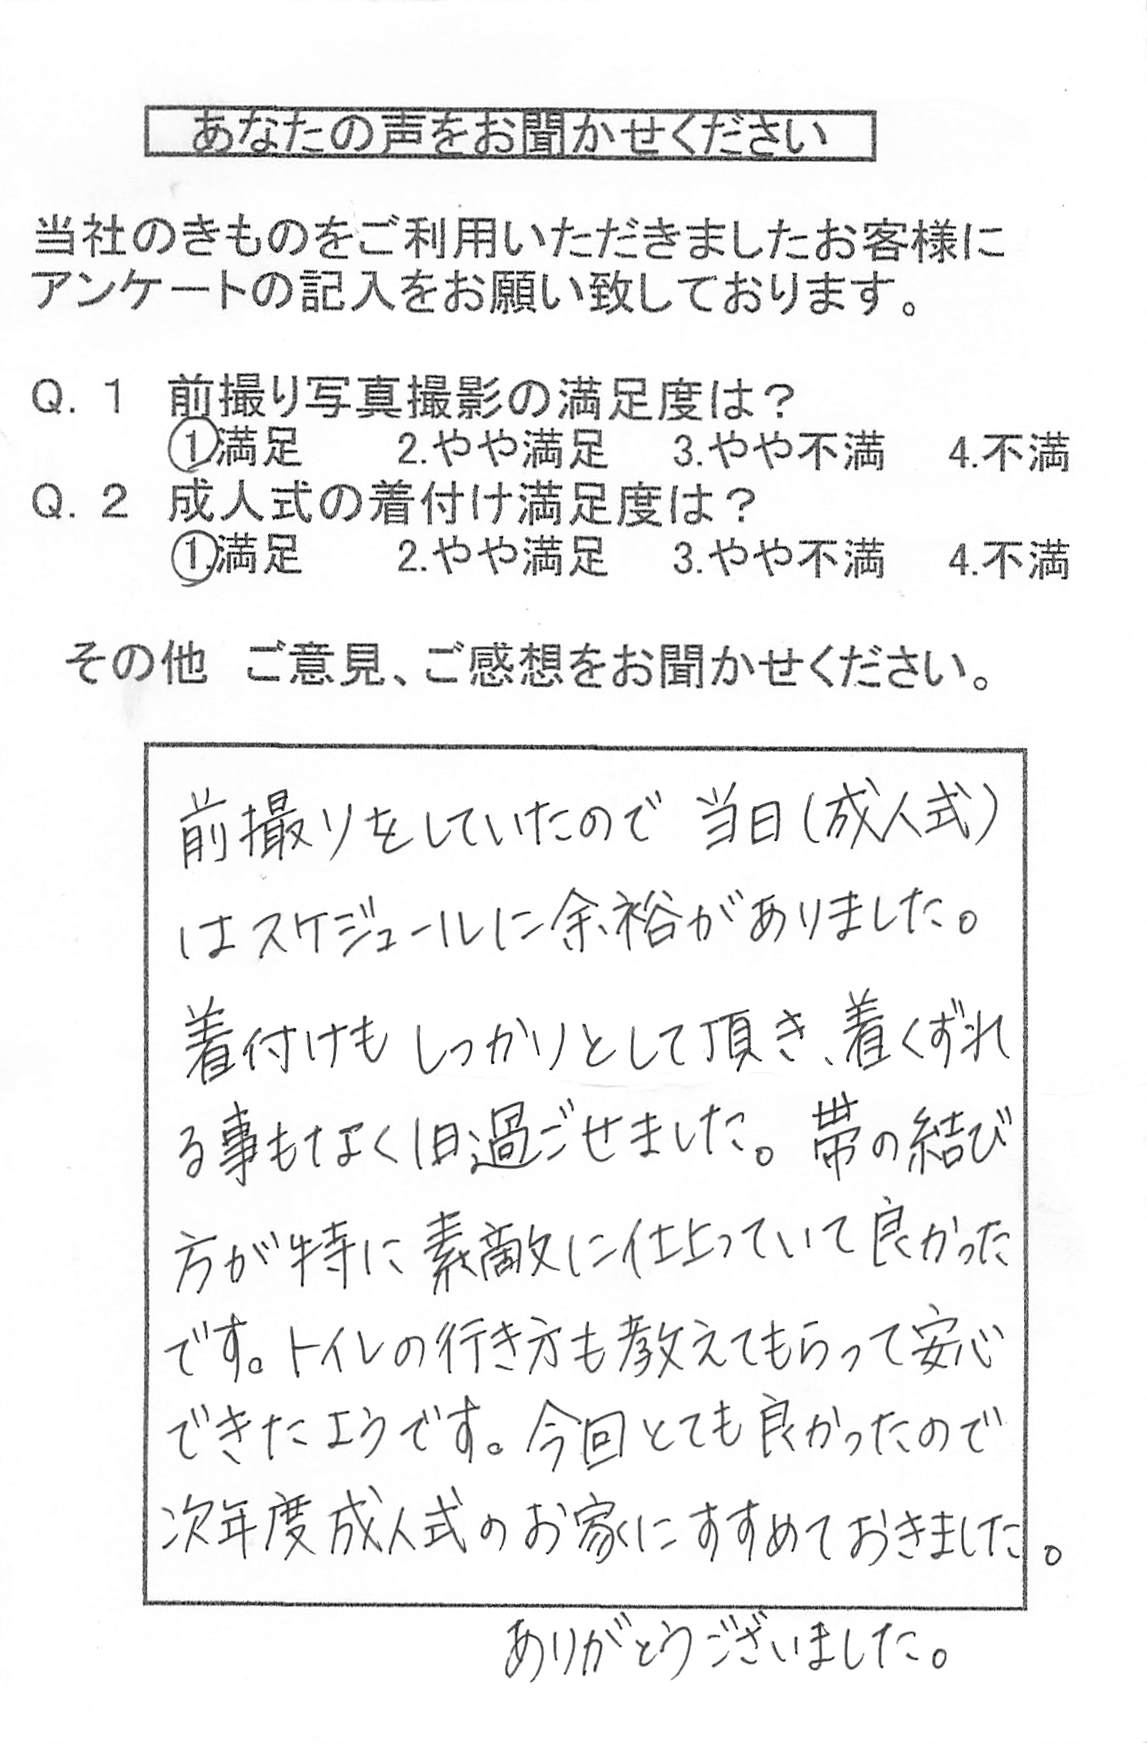 あなたの声をお聞かせください
当社のきものをご利用いただきましたお客様に
アンケートの記入をお願い致しております。
Q. 1 前撮り写真撮影の満足度は?
1.満足 2.やや満足 3.やや不満 4.不満
Q. 2 成人式の着付け満足度は?
1.満足 2.やや満足 3.やや不満 4.不満
その他 ご意見、ご感想をお聞かせください。
前撮りをしていたので 当日(成人式)
はスケジュールに余裕がありました。
着付けもしっかりとして頂き、着くずれ
る事もなく1日過ごせました。帯の結び
方が特に素敵に仕上っていて良かった
です。トイレの行き方も教えてもらって安心
できたようです。今回とても良かったので
次年度成人式のお家にすすめておきました。
ありがとうございました。